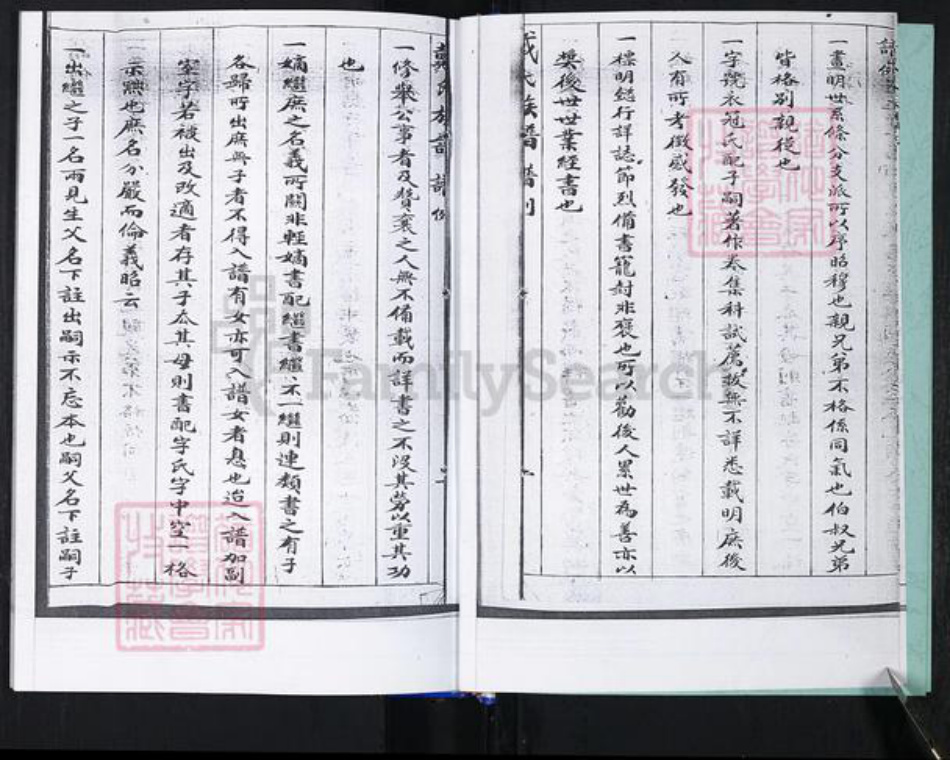 一畫明世系條分支派所以序昭穆也親兄弟不格係同氣也伯叔兄弟
皆格別親從也
一字號衣冠氏配子嗣著作卷集科試薦拔無不詳悉載明庶後
人有所考徵感發也
一標明懿行詳誌節烈備書寵封非褒也所以勸後人累世為善亦以
獎後世世業經書也
氏族譜
一修舉公事者及贊襄之人無不備載而詳書之不沒其勞以重其功
也
一嫡繼庶之名義所關非輕嫡書配繼書繼不一繼則連類書之有子
各歸所出庶無子者不得入譜有女亦可入譜女者息也迨入譜加副
室字若被出及改適者存其子在其母則書配字氏字中空一格
示黜也庶名分嚴而倫義昭云
一出繼之子一名而見生父名下註出嗣示不忘本也嗣父名下註嗣子
FamilySearch